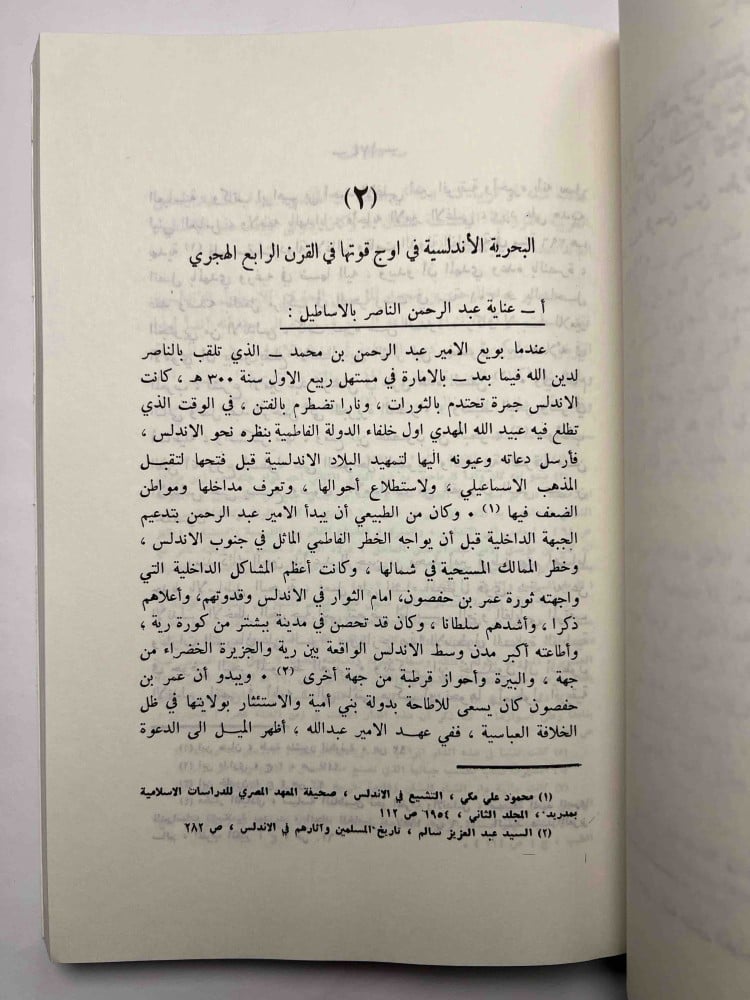 (٢)
البحرية الأندلسية في اوج قوتها في القرن الرابع الهجري
أ ــ عناية عبد الرحمن الناصر بالاساطيل :
عندما بويع الامير عبد الرحمن بن محمد ــ الذي تلقب بالناصر
لدين الله فيما بعد ــ بالامارة في مستهل ربيع الاول سنة ٣٠٠ هـ ، كانت
الاندلس جمرة تحتدم بالثورات ، ونارا تضطرم بالفتن ، في الوقت الذي
تطلع فيه عبيد الله المهدي اول خلفاء الدولة الفاطمية بنظره نحو الاندلس ،
فأرسل دعاته وعيونه اليها لتمهيد البلاد الاندلسية قبل فتحها لتقبل
المذهب الاسماعيلي ، ولاستطلاع أحوالها ، وتعرف مداخلها ومواطن
الضعف فيها (١) ٠ وكان من الطبيعي أن يبدأ الامير عبد الرحمن بتدعيم
الجبهة الداخلية قبل أن يواجه الخطر الفاطمي الماثل في جنوب الاندلس ،
وخطر الممالك المسيحية في شمالها ، وكانت أعظم المشاكل الداخلية التي
واجهته ثورة عمر بن حفصون، امام الثوار في الاندلس وقدوتهم، وأعلاهم
ذكرا ، وأشدهم سلطانا ، وكان قد تحصن في مدينة ببشتر من كورة رية ،
وأطاعته أكبر مدن وسط الاندلس الواقعة بين رية والجزيرة الخضراء من
جهة ، والبيرة وأحواز قرطبة من جهة أخرى (٢) ٠ ويبدو أن عمر بن
حفصون كان يسعى للاطاحة بدولة بني أمية والاستئثار بولايتها في ظل
الخلافة العباسية ، ففي عهد الامير عبدالله ، أظهر الميل الى الدعوة
(١) محمود علي مكي ، التشيع في الاندلس ، صحيفة المعهد المصري للدراسات الاسلامية
بمدريد ، المجلد الثاني ، ٦٩٥٤ ص ١١٢
(٢) السيد عبد العزيز سالم ، تاريخ المسلمين وآثارهم في الاندلس ، ص ٢٨٢